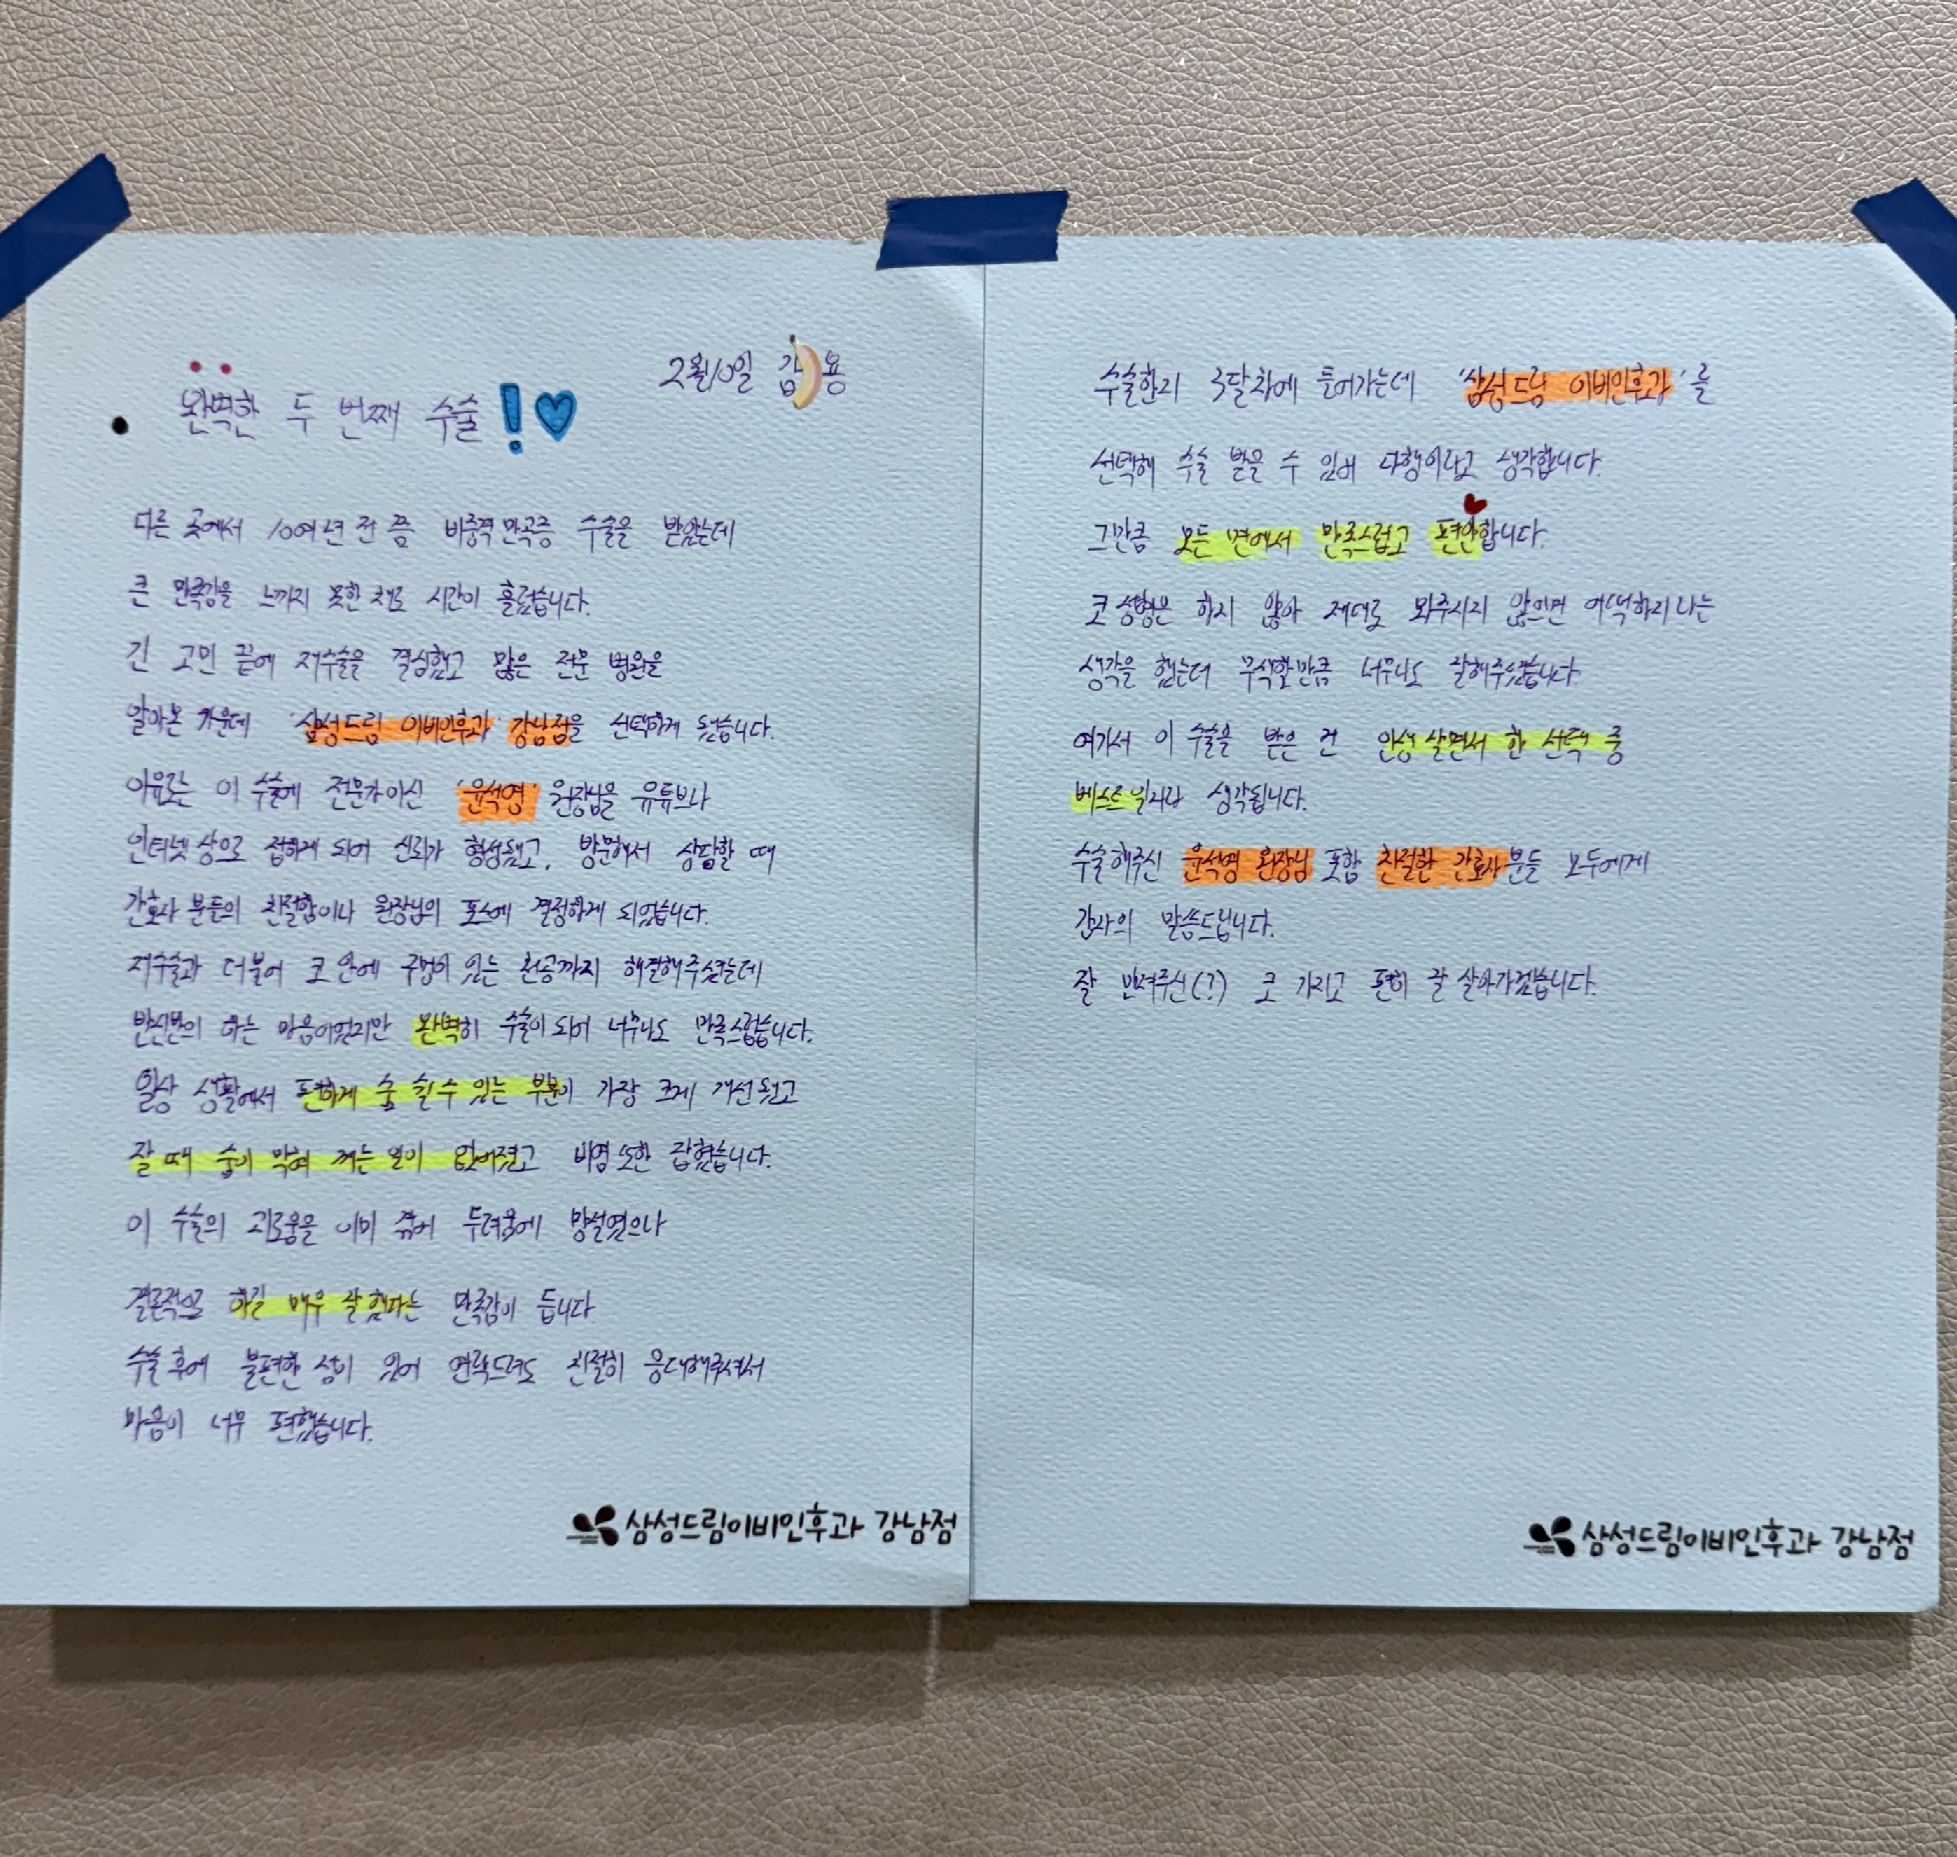 2월10일 김 용
완벽한 두 번째 수술!♡
다른 곳에서 10여년 전 쯤 비중격만곡증 수술을 받았는데
큰 만족감을 느끼지 못한 채로 시간이 흘렀습니다.
긴 고민 끝에 재수술을 결심했고 많은 전문 병원을
알아본 가운데 '삼성드림 이비인후과 강남점을 선택하게 됐습니다.
이유로는 이 수술에 전문가이신 '윤석영' 원장님을 유튜브나
인터넷 상으로 접하게 되어 신뢰가 형성됐고, 방문해서 상담할 때
간호사 분들의 친절함이나 원장님의 포스에 결정하게 되었습니다.
재수술과 더불어 코 안에 구멍이 있는 천공까지 해결해주셨는데
반신반의 하는 마음이었지만 완벽히 수술이 되어 너무나도 만족스럽습니다.
일상 생활에서 편하게 숨 쉴 수 있는 부분이 가장 크게 개선됐고
잘 때 숨이 막혀 깨는 일이 없어졌고 비염 또한 잡혔습니다.
이 수술의 괴로움을 이미 겪어 두려움에 망설였으나
결론적으로 하길 매우 잘 했다는 만족감이 듭니다
수술 후에 불편한 점이 있어 연락드려도 친절히 응대해주셔서
마음이 너무 편했습니다.
삼성드림이비인후과 강남점
수술한지 3달차에 들어가는데 '삼성드림 이비인후과'를
선택해 수술 받을 수 있어 다행이라고 생각합니다.
그만큼 모든 면에서 만족스럽고 편안합니다.
코 성형은 하지 않아 제대로 봐주시지 않으면 어떡하지라는
생각을 했는데 무색할만큼 너무나도 잘해주셨습니다.
여기서 이 수술을 받은 건 인생 살면서 한 선택 중
베스트일거라 생각됩니다.
수술해주신 윤석영 원장님 포함 친절한 간호사분들 모두에게
감사의 말씀드립니다.
잘 만져주신(?) 코 가지고 편히 잘 살아가겠습니다.
삼성드림이비인후과 강남점